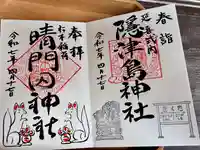 春詣
延喜式内
隠津島神社
令和七年四月十七日
奉拝
杉本稲荷
晴門田神社
令和七年四月十七日